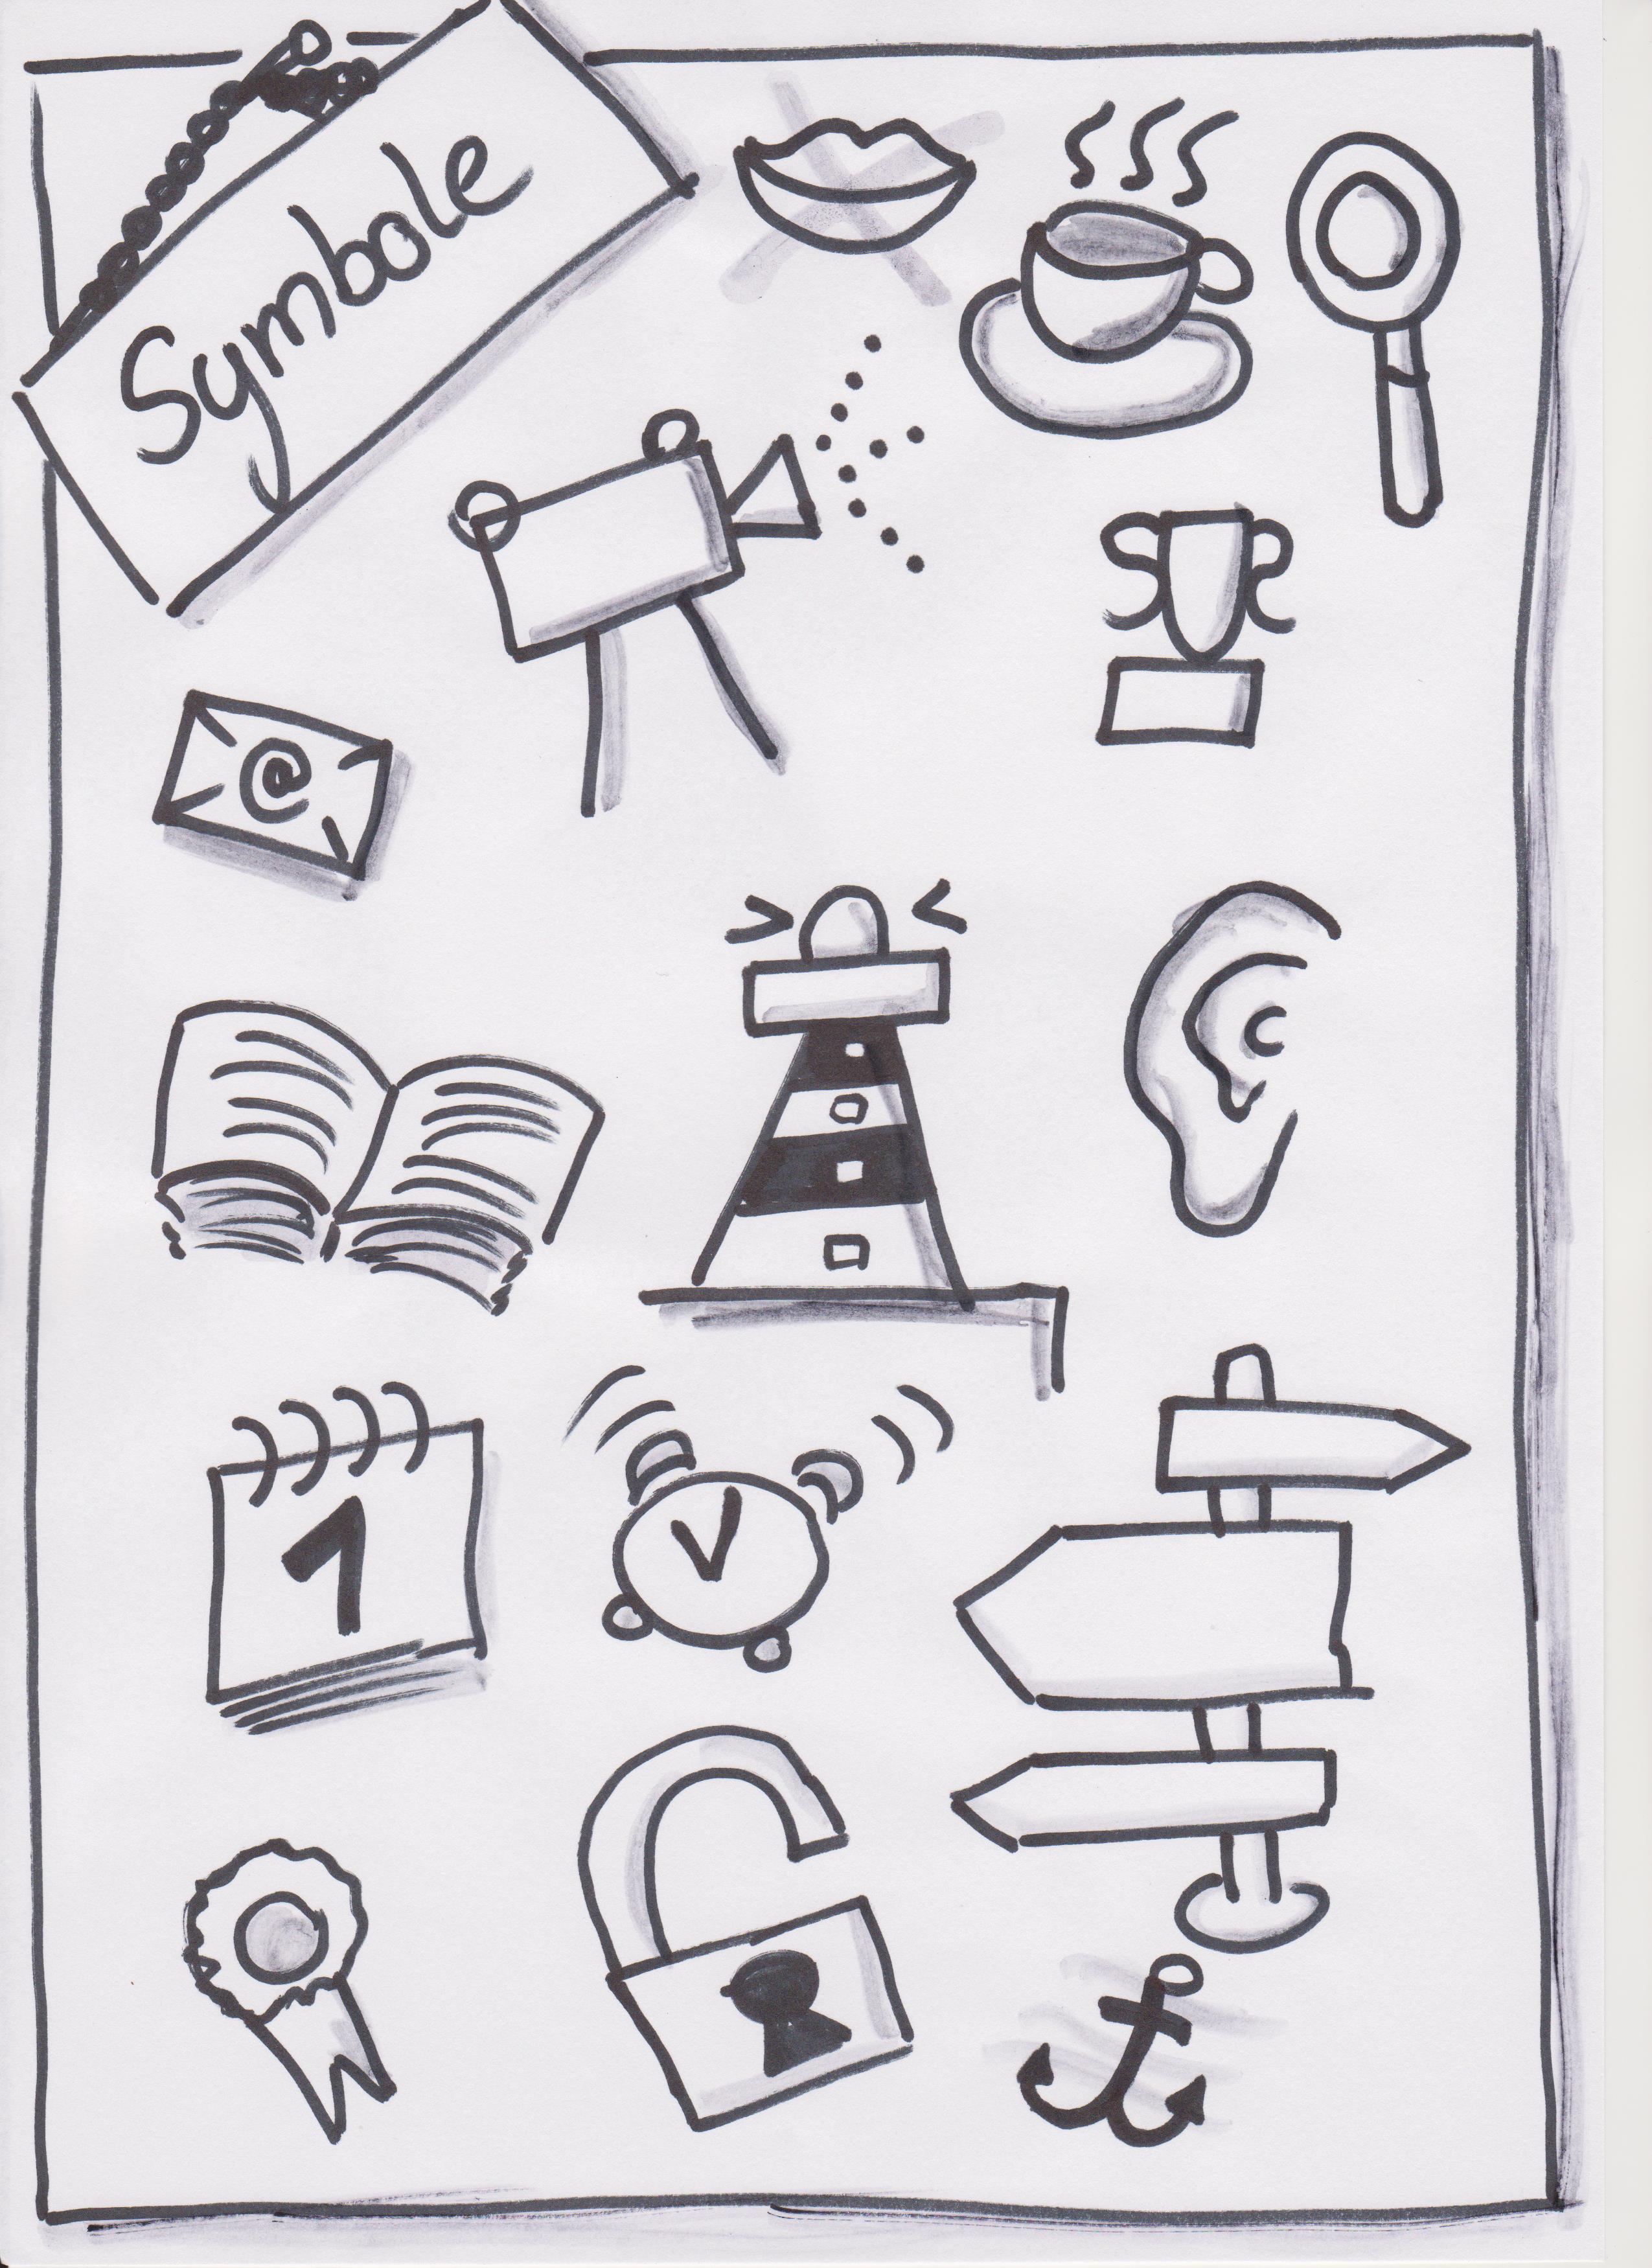 Symbole
@
1